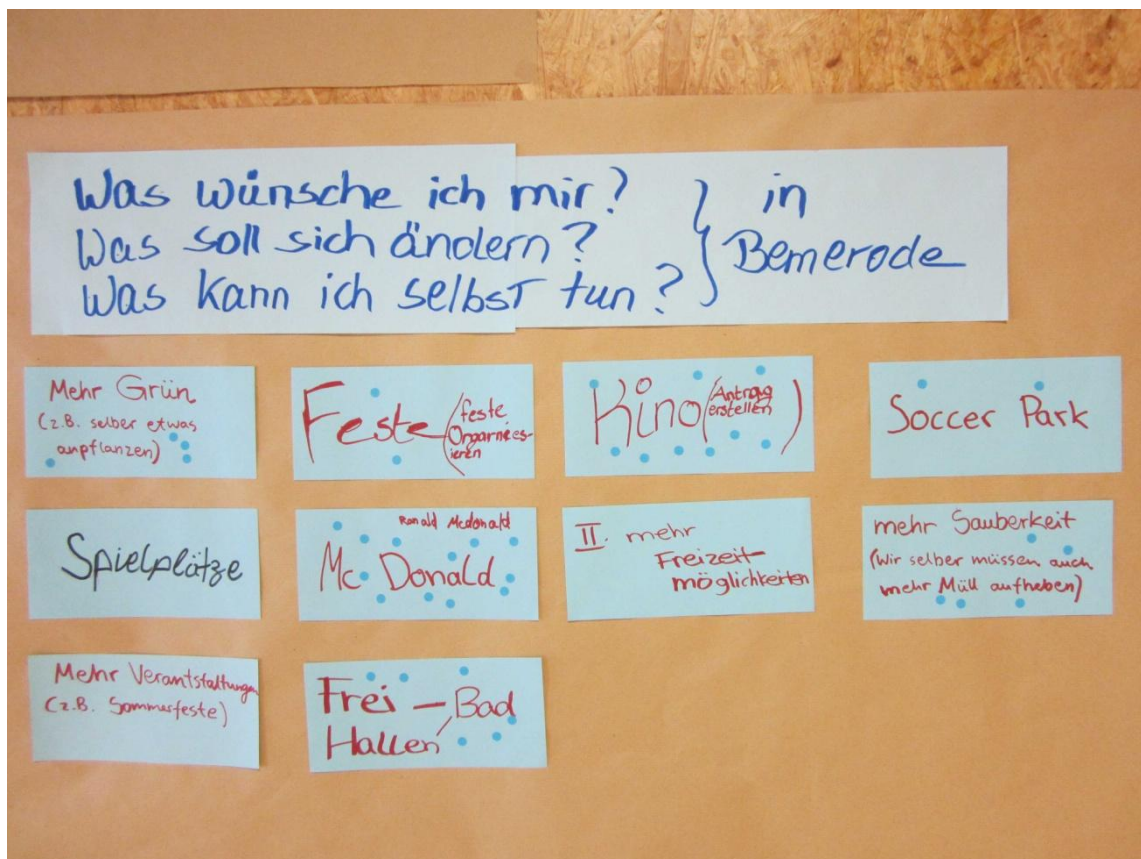 Was wünsche ich mir?
Was soll sich ändern?
Was kann ich selbst tun?
} in
Bemerode
Mehr Grün
(z.B. selber etwas
anpflanzen)
Feste (feste
Orgarnies-
ieren
Kino (Antrag
erstellen)
Soccer Park
Spielplätze
Ronald Mcdonald
Mc Donald
II. mehr
Freizeit-
möglichkeiten
mehr Sauberkeit
(Wir selber müssen auch
mehr Müll aufheben)
Mehr Verantstaltungen
(z.B. Sommerfeste)
Frei - Bad
Hallen